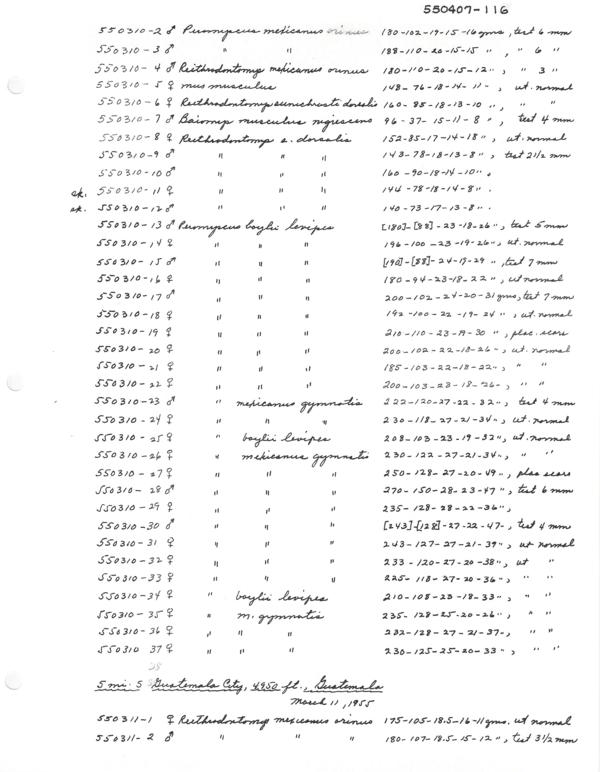 550407-116
550310-2 ♂ Peromyscus mexicanus orinus 180-102-19-15-16 gms, test 6 mm
550310-3 ♂ " " 188-110-20-15-15 ", " 6 "
550310-4 ♂ Reithrodontomys mexicanus orinus 180-110-20-15-12 ", " 3 "
550310-5 ♀ mus musculus 148-76-18-14-11-, ut. normal
550310-6 ♀ Reithrodontomys sumichrasti dorsalis 160-85-18-13-10 ", " "
550310-7 ♂ Baiomys musculus nigrescens 96-37-15-11-8 ", test 4 mm
550310-8 ♀ Reithrodontomys s. dorsalis 152-85-17-14-18 ", ut. normal
550310-9 ♂ " " " 143-78-18-13-8 ", test 2 1/2 mm
550310-10 ♂ " " " 160-90-18-14-10 ".
sk. 550310-11 ♀ " " " 144-78-18-14-8 ".
sk. 550310-12 ♂ " " " 140-73-17-13-8 ".
550310-13 ♂ Peromyscus boylii levipes [180]-[88]-23-18-26 ", test 5 mm
550310-14 ♀ " " " 196-100-23-19-26 ", ut. normal
550310-15 ♂ " " " [190]-[88]-24-19-29 ", test 7 mm
550310-16 ♀ " " " 180-94-23-18-22 ", ut normal
550310-17 ♂ " " " 200-102-24-20-31 gms, test 7 mm
550310-18 ♀ " " " 192-100-22-19-24 ", ut. normal
550310-19 ♀ " " " 210-110-23-19-30 ", plac. scars
550310-20 ♀ " " " 200-102-22-18-26 -, ut. normal
550310-21 ♀ " " " 185-103-22-18-22 -, " "
550310-22 ♀ " " " 200-103-23-18-26 -, " "
550310-23 ♂ " mexicanus gymnotis 222-120-27-22-32 ", test 4 mm
550310-24 ♀ " " " 230-118-27-21-34 ", ut. normal
550310-25 ♀ " boylii levipes 208-103-23-19-32 ", ut. normal
550310-26 ♀ " mexicanus gymnotis 230-122-27-21-34 -, " "
550310-27 ♀ " " " 250-128-27-20-49 ", plac scars
550310-28 ♂ " " " 270-150-28-23-47 ", test 6 mm
550310-29 ♀ " " " 235-128-28-22-36 ",
550310-30 ♂ " " " [243]-[128]-27-22-47-, test 4 mm
550310-31 ♀ " " " 243-127-27-21-39 ", ut normal
550310-32 ♀ " " " 233-120-27-20-38 ", ut "
550310-33 ♀ " " " 225-118-27-20-36 -, " "
550310-34 ♀ " boylii levipes 210-108-23-18-33 ", " "
550310-35 ♀ " m. gymnotis 235-128-25-20-26 ", " "
550310-36 ♀ " " " 232-128-27-21-37-, " "
550310 37 ♀ " " " 230-125-25-20-33 ", " "
38
5 mi. S Guatemala City, 4950 ft., Guatemala
March 11, 1955
550311-1 ♀ Reithrodontomys mexicanus orinus 175-105-18.5-16-11 gms. ut normal
550311-2 ♂ " " " 180-107-18.5-15-12 ", test 3 1/2 mm